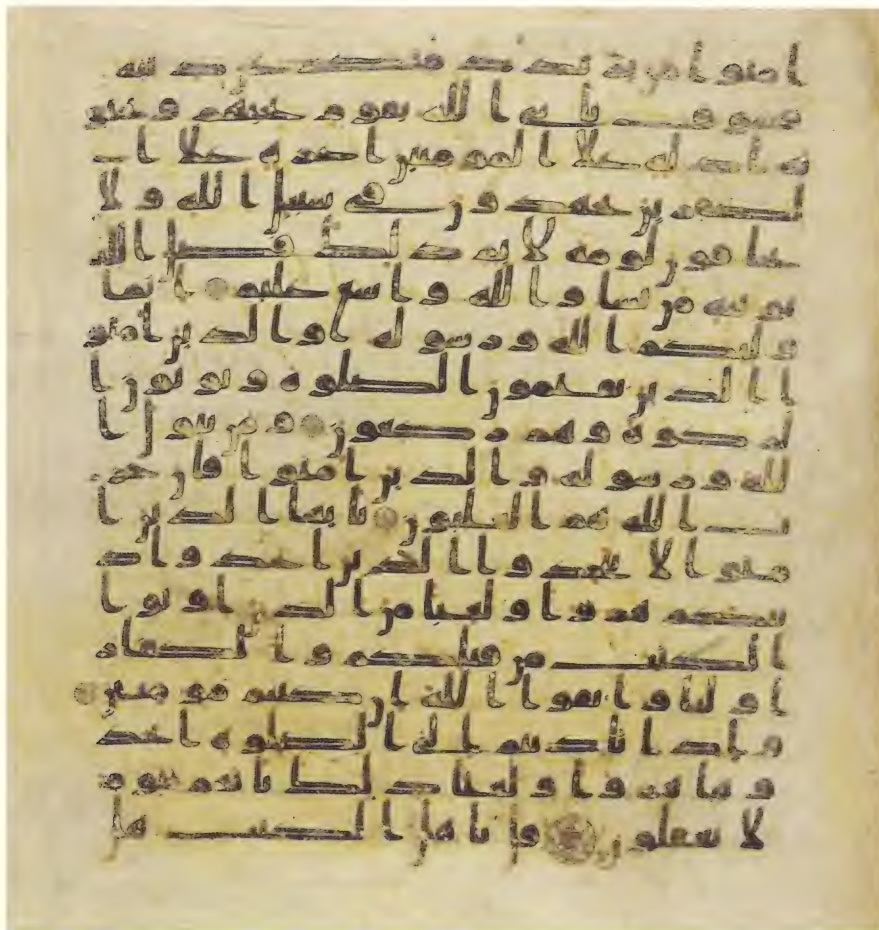 امنوا من يرتدد منكم عن دينه
فسوف ياتي الله بقوم يحبهم ويحبو
نه اذلة علا المومنين اعزة علا ا
لكفرين يجهدون في سبيل الله ولا
يخافون لومة لايم ذلك فضل الله
يوتيه من يشا والله واسع عليم انما
وليكم الله ورسوله والذين امنو
ا الذين يقيمون الصلوة ويوتون ا
لزكوة وهم ركعون ومن يتول ا
لله ورسوله والذين امنوا فان حز
ب الله هم الغلبون يايها الذين ا
منوا لا تتخذوا الذين اتخذوا د
ينكم هزوا ولعبا من الذين اوتوا
الكتب من قبلكم والكفار
اوليا واتقوا الله ان كنتم مومنين
واذا ناديتم الى الصلوة اتخذ
وها هزوا ولعبا ذلك بانهم قوم
لا يعقلون قل ياهل الكتب هل